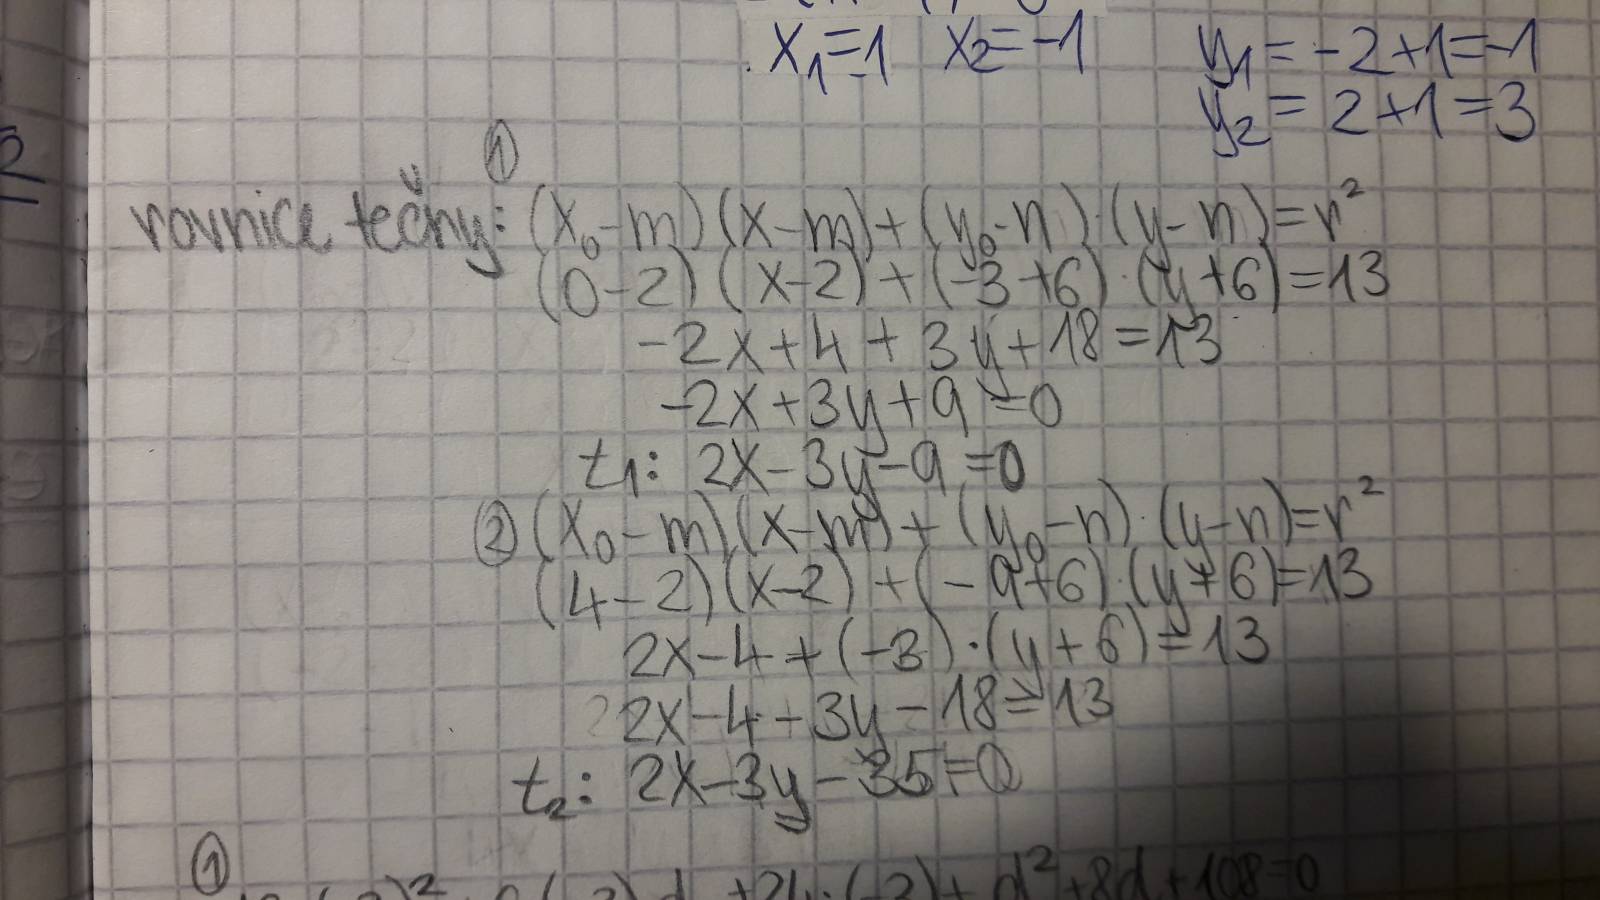 x₁=1 x₂=-1 y₁=-2+1=-1
y₂=2+1=3
2
①
rovnice tečny: (x₀-m)(x-m)+(y₀-n)·(y-n)=r²
(0-2)(x-2)+(-3+6)·(y+6)=13
-2x+4+3y+18=13
-2x+3y+9=0
t₁: 2x-3y-9=0
② (x₀-m)(x-m)+(y₀-n)·(y-n)=r²
(4-2)(x-2)+(-9+6)·(y+6)=13
2x-4+(-3)·(y+6)=13
2x-4-3y-18=13
t₂: 2x-3y-35=0
①
+d²+8d+108=0